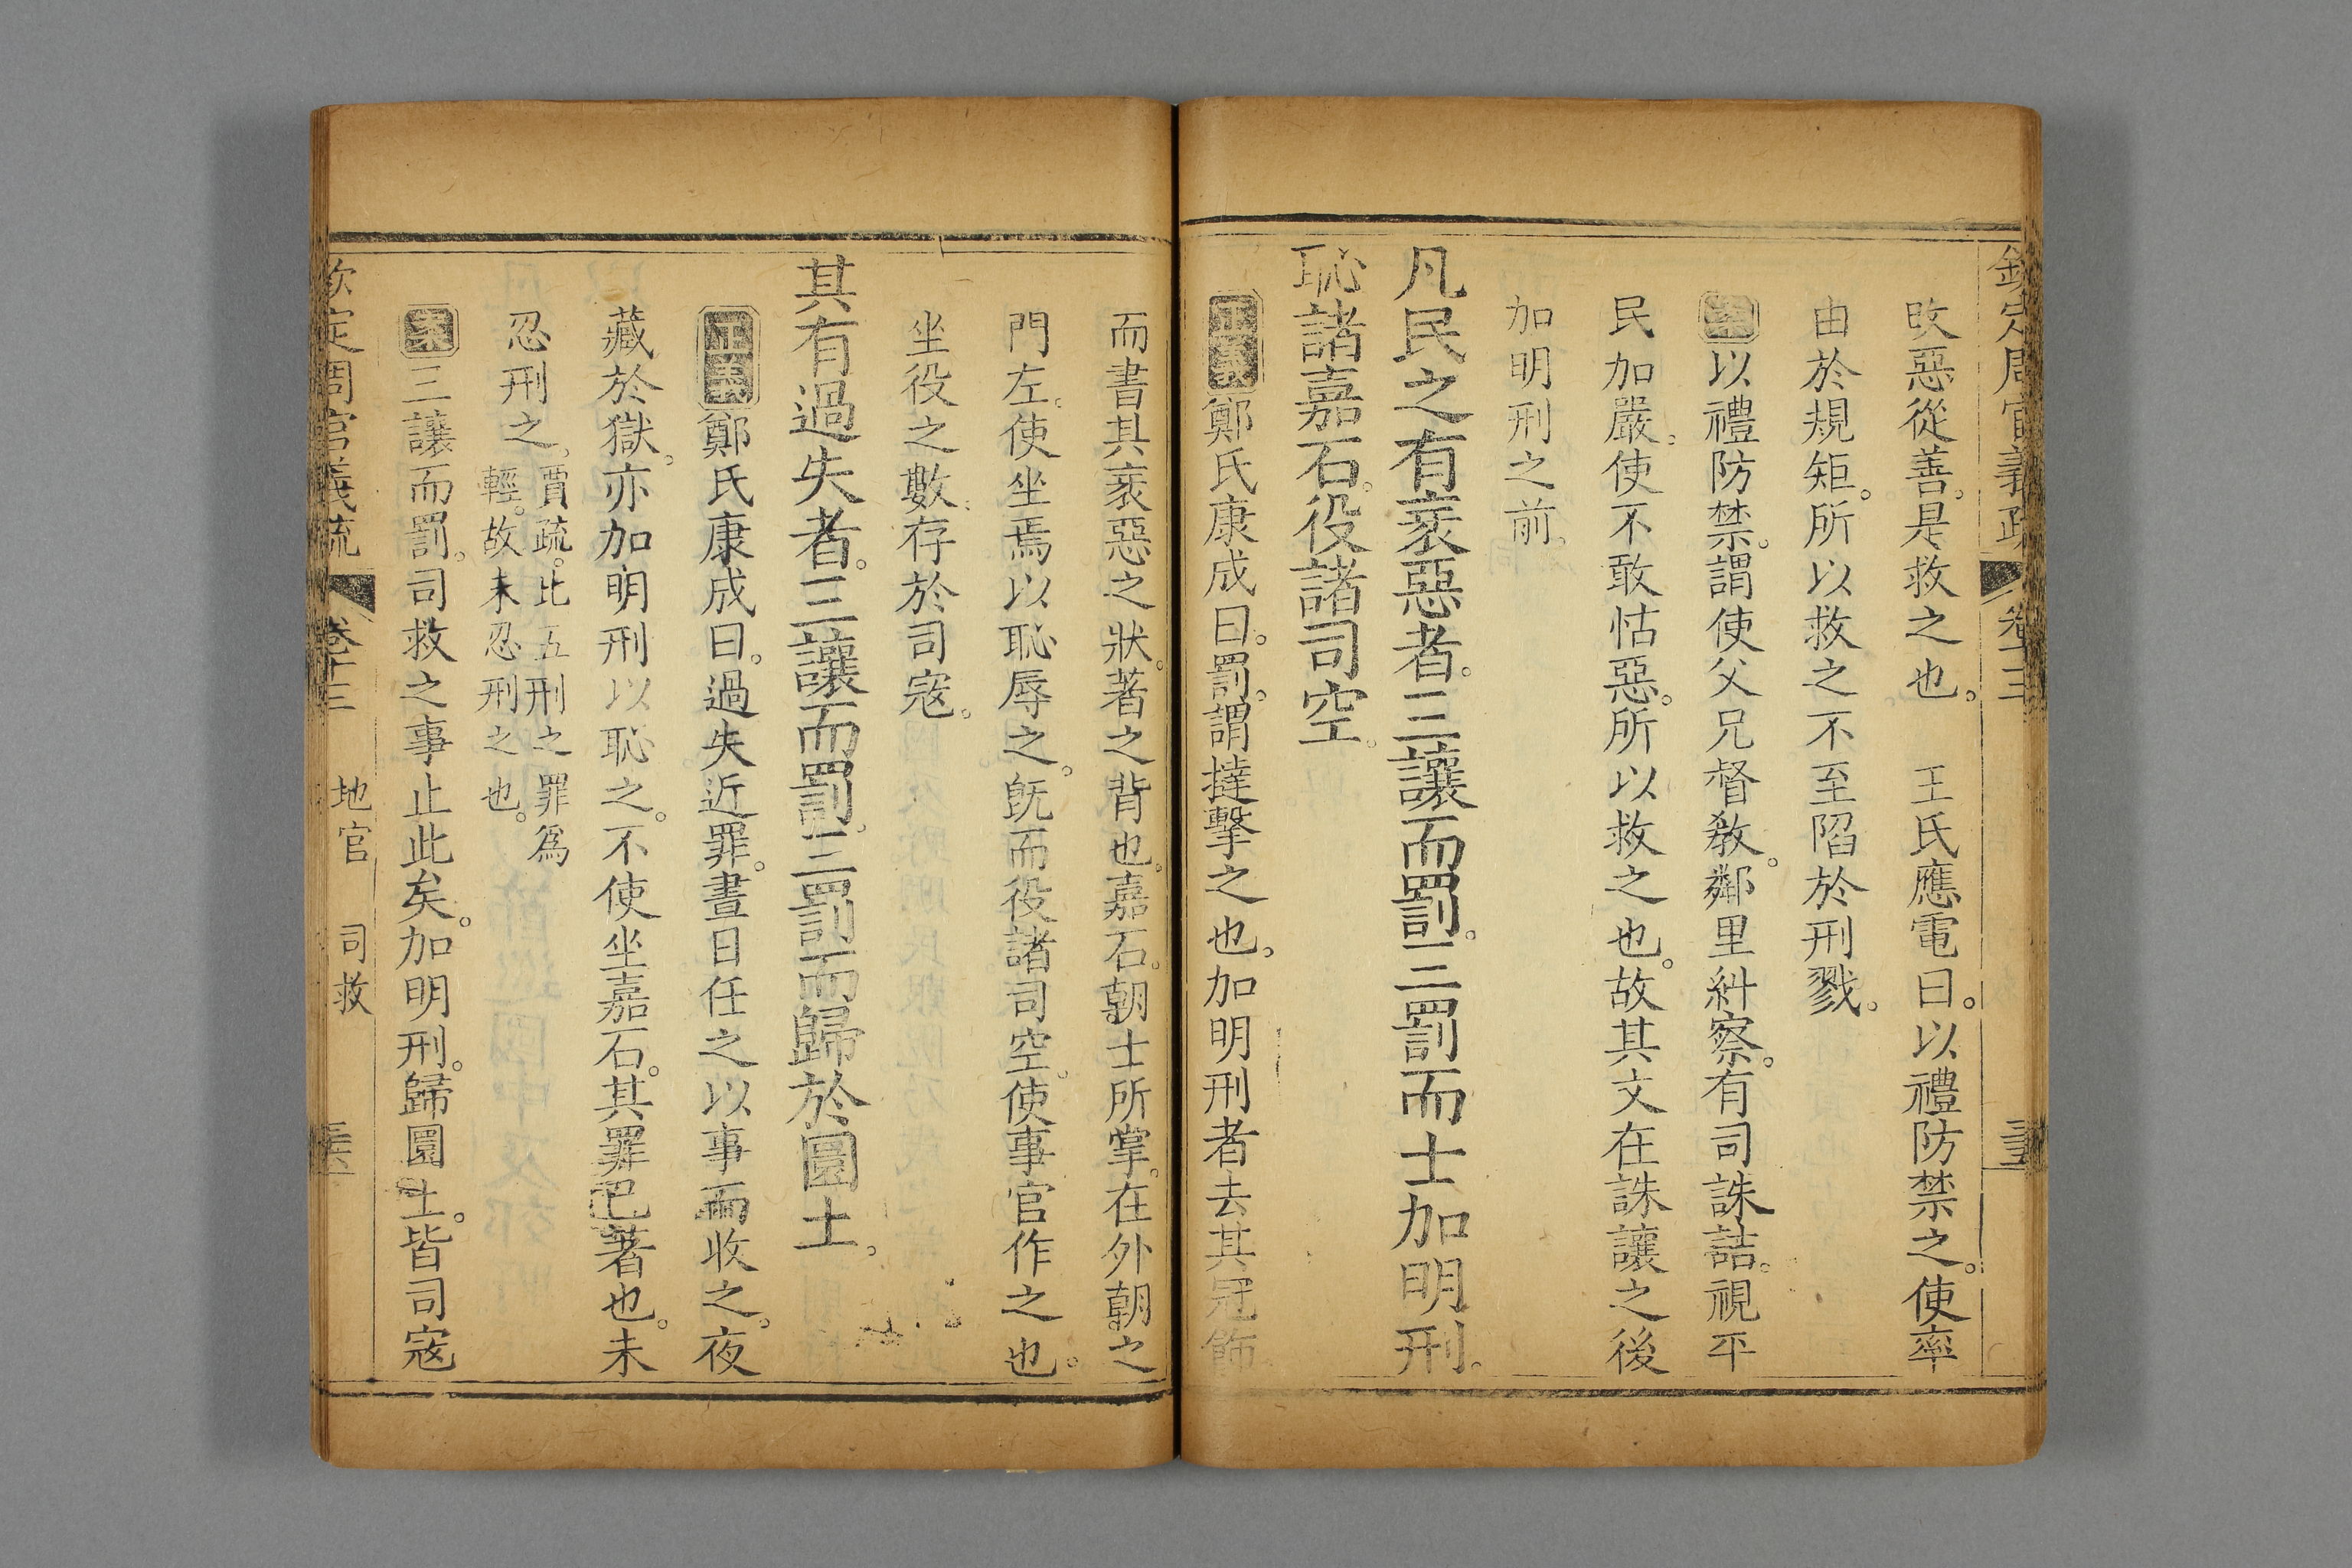 欽定周官義疏 卷十三
攺惡從善。是救之也。 王氏應電曰。以禮防禁之。使率
由於規矩。所以救之不至陷於刑戮。
案以禮防禁。謂使父兄督敎。鄰里糾察。有司誅詰。視平
民加嚴。使不敢怙惡。所以救之也。故其文在誅讓之後
加明刑之前。
凡民之有衺惡者。三讓而罰。三罰而士加明刑。
恥諸嘉石。役諸司空。
正義鄭氏康成曰。罰。謂撻擊之也。加明刑者去其冠飾。
而書其衺惡之狀。著之背也。嘉石。朝士所掌。在外朝之
門左。使坐焉以恥辱之。旣而役諸司空。使事官作之也。
坐役之數。存於司寇。
其有過失者。三讓而罰。三罰而歸於圜土。
正義鄭氏康成曰。過失近罪。晝日任之以事而收之。夜
藏於獄。亦加明刑以恥之。不使坐嘉石。其罪已著也。未
忍刑之。賈疏。比五刑之罪爲
輕。故未忍刑之也。
案三讓而罰。司救之事止此矣。加明刑。歸圜土。皆司寇
欽定周官義疏 卷十三 地官 司救